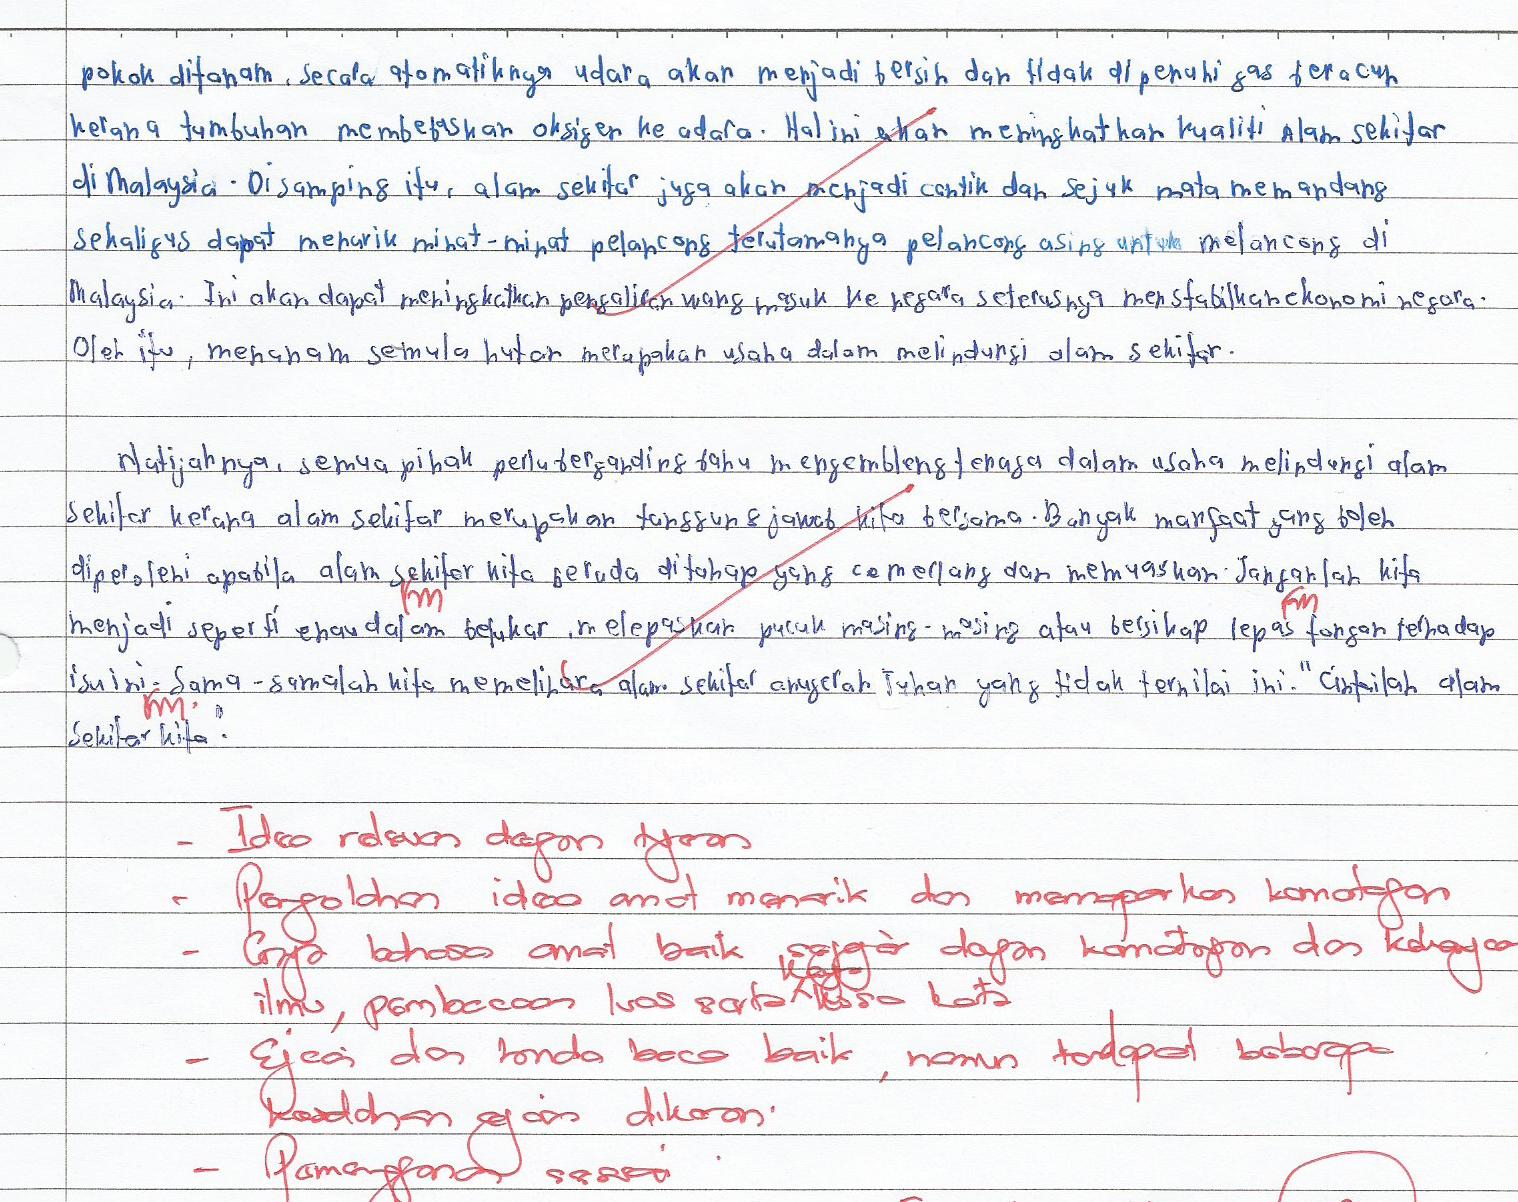 pokok ditanam, secara atomatiknya udara akan menjadi bersih dan tidak dipenuhi gas beracun
kerana tumbuhan membebaskan oksigen ke udara. Hal ini akan meningkatkan kualiti Alam sekitar
di Malaysia. Disamping itu, alam sekitar juga akan menjadi cantik dan sejuk mata memandang
sekaligus dapat menarik minat-minat pelancong terutamanya pelancong asing untuk melancong di
Malaysia. Ini akan dapat meningkatkan pengaliran wang masuk ke negara seterusnya menstabilkan ekonomi negara.
Oleh itu, menanam semula hutan merupakan usaha dalam melindungi alam sekitar.
Natijahnya, semua pihak perlu berganding bahu mengembleng tenaga dalam usaha melindungi alam
sekitar kerana alam sekitar merupakan tanggungjawab kita bersama. Banyak manfaat yang boleh
diperolehi apabila alam sekitar kita berada ditahap yang cemerlang dan memuaskan. Janganlah kita
menjadi seperti enau dalam belukar, melepaskan pucuk masing-masing atau bersikap lepas tangan terhadap
isu ini. Sama-samalah kita memelihara alam sekitar anugerah Tuhan yang tidak ternilai ini. "Cintailah alam
sekitar kita".
- Idea relevan dengan tajaan
- Pengolahan idea amat menarik dan memaparkan kematangan
- Gaya bahasa amat baik sejajar dengan kematangan dan
ilmu, pembacaan luas serta kosa kata
- Ejaan dan tanda baca baik, namun terdapat beberapa
kesalahan ejaan dikesan.
- Pemerenggan sesuai